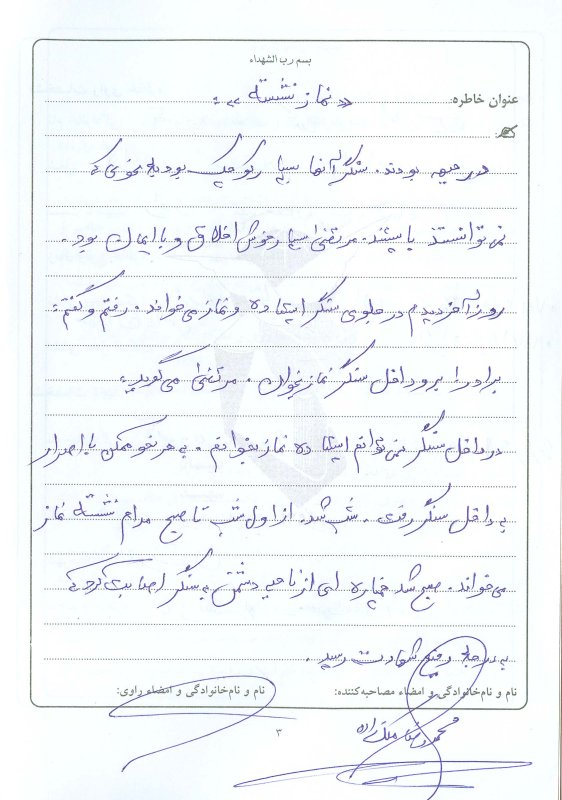 بسم رب الشهداء
عنوان خاطره: «نماز نشسته»:
در جبهه بودند. سنگر آنها بسیار کوچک بود به نحوی که
نمی‌توانستند بایستند. مرتضی بسیار خوش اخلاق و با ایمان بود.
روز آخر دیدم در جلوی سنگر ایستاده و نماز می‌خواند. رفتم و گفتم:
برادر برو داخل سنگر نماز بخوان. مرتضی می‌گوید:
در داخل سنگر نمی‌توانم ایستاده نماز بخوانم. به هر نحو ممکن با اصرار
به داخل سنگر رفت. شب شد. از اول شب تا صبح مدام نشسته نماز
می‌خواند. صبح شد خمپاره ای از ناحیه دشمن به سنگر اصابت کرد که
به درجه رفیع شهادت رسید.
نام و نام‌خانوادگی و امضاء مصاحبه‌کننده: نام و نام‌خانوادگی و امضاء راوی:
۳